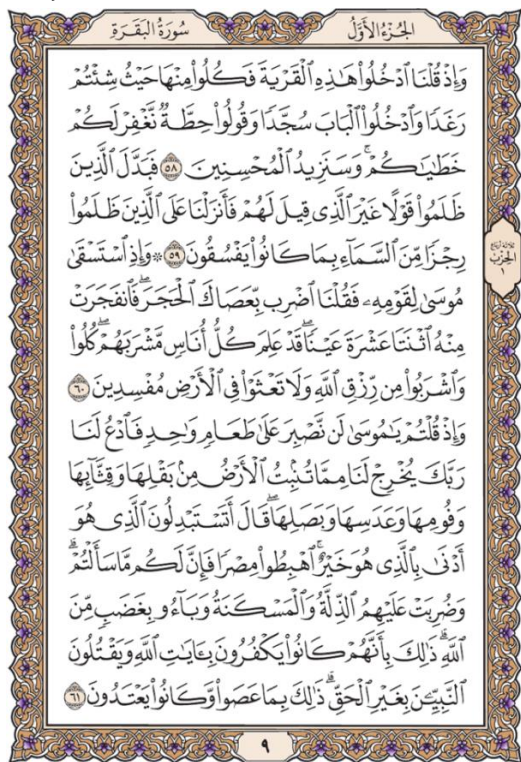 سُورَةُ البَقَرَةِ
الجُزْءُ الأَوَّلُ
وَإِذْ قُلْنَا ٱدْخُلُوا۟ هَـٰذِهِ ٱلْقَرْيَةَ فَكُلُوا۟ مِنْهَا حَيْثُ شِئْتُمْ
رَغَدًا وَٱدْخُلُوا۟ ٱلْبَابَ سُجَّدًا وَقُولُوا۟ حِطَّةٌ نَّغْفِرْ لَكُمْ
خَطَـٰيَـٰكُمْ ۚ وَسَنَزِيدُ ٱلْمُحْسِنِينَ ٥٨ فَبَدَّلَ ٱلَّذِينَ
ظَلَمُوا۟ قَوْلًا غَيْرَ ٱلَّذِى قِيلَ لَهُمْ فَأَنزَلْنَا عَلَى ٱلَّذِينَ ظَلَمُوا۟
رِجْزًا مِّنَ ٱلسَّمَآءِ بِمَا كَانُوا۟ يَفْسُقُونَ ٥٩ ۞ وَإِذِ ٱسْتَسْقَىٰ
مُوسَىٰ لِقَوْمِهِۦ فَقُلْنَا ٱضْرِب بِّعَصَاكَ ٱلْحَجَرَ ۖ فَٱنفَجَرَتْ
مِنْهُ ٱثْنَتَا عَشْرَةَ عَيْنًا ۖ قَدْ عَلِمَ كُلُّ أُنَاسٍ مَّشْرَبَهُمْ ۖ كُلُوا۟
وَٱشْرَبُوا۟ مِن رِّزْقِ ٱللَّهِ وَلَا تَعْثَوْا۟ فِى ٱلْأَرْضِ مُفْسِدِينَ ٦٠
وَإِذْ قُلْتُمْ يَـٰمُوسَىٰ لَن نَّصْبِرَ عَلَىٰ طَعَامٍ وَٰحِدٍ فَٱدْعُ لَنَا
رَبَّكَ يُخْرِجْ لَنَا مِمَّا تُنۢبِتُ ٱلْأَرْضُ مِنۢ بَقْلِهَا وَقِثَّآئِهَا
وَفُومِهَا وَعَدَسِهَا وَبَصَلِهَا ۖ قَالَ أَتَسْتَبْدِلُونَ ٱلَّذِى هُوَ
أَدْنَىٰ بِٱلَّذِى هُوَ خَيْرٌ ۚ ٱهْبِطُوا۟ مِصْرًا فَإِنَّ لَكُم مَّا سَأَلْتُمْ ۗ
وَضُرِبَتْ عَلَيْهِمُ ٱلذِّلَّةُ وَٱلْمَسْكَنَةُ وَبَآءُو بِغَضَبٍ مِّنَ
ٱللَّهِ ۗ ذَٰلِكَ بِأَنَّهُمْ كَانُوا۟ يَكْفُرُونَ بِـَٔايَـٰتِ ٱللَّهِ وَيَقْتُلُونَ
ٱلنَّبِيِّـۧنَ بِغَيْرِ ٱلْحَقِّ ۗ ذَٰلِكَ بِمَا عَصَوا۟ وَّكَانُوا۟ يَعْتَدُونَ ٦١
ثلاثة أرباع
الحزب
١
٩